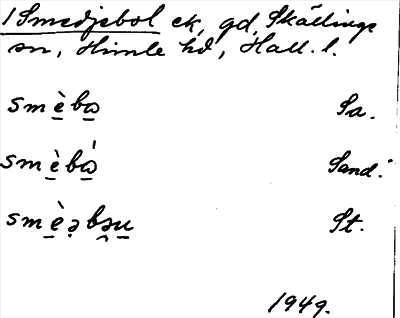 1 Smedjebol ek, gd, Skällinge
sn, Himle hd, Hall. l.
smèbω Sa.
smèbώ Sand.
smèəbəu St.
1949.